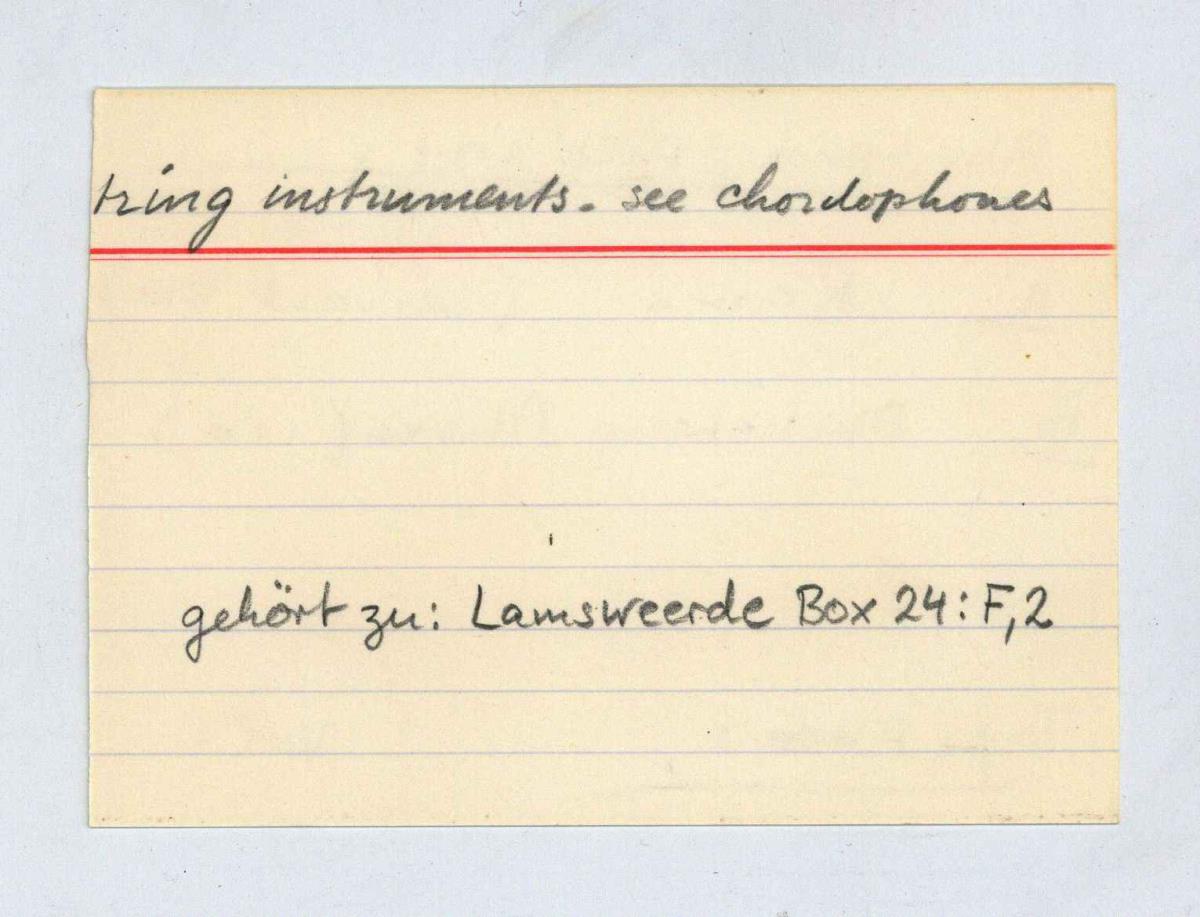 tring instruments. see chordophones
gehört zu: Lamsweerde Box 24: F,2